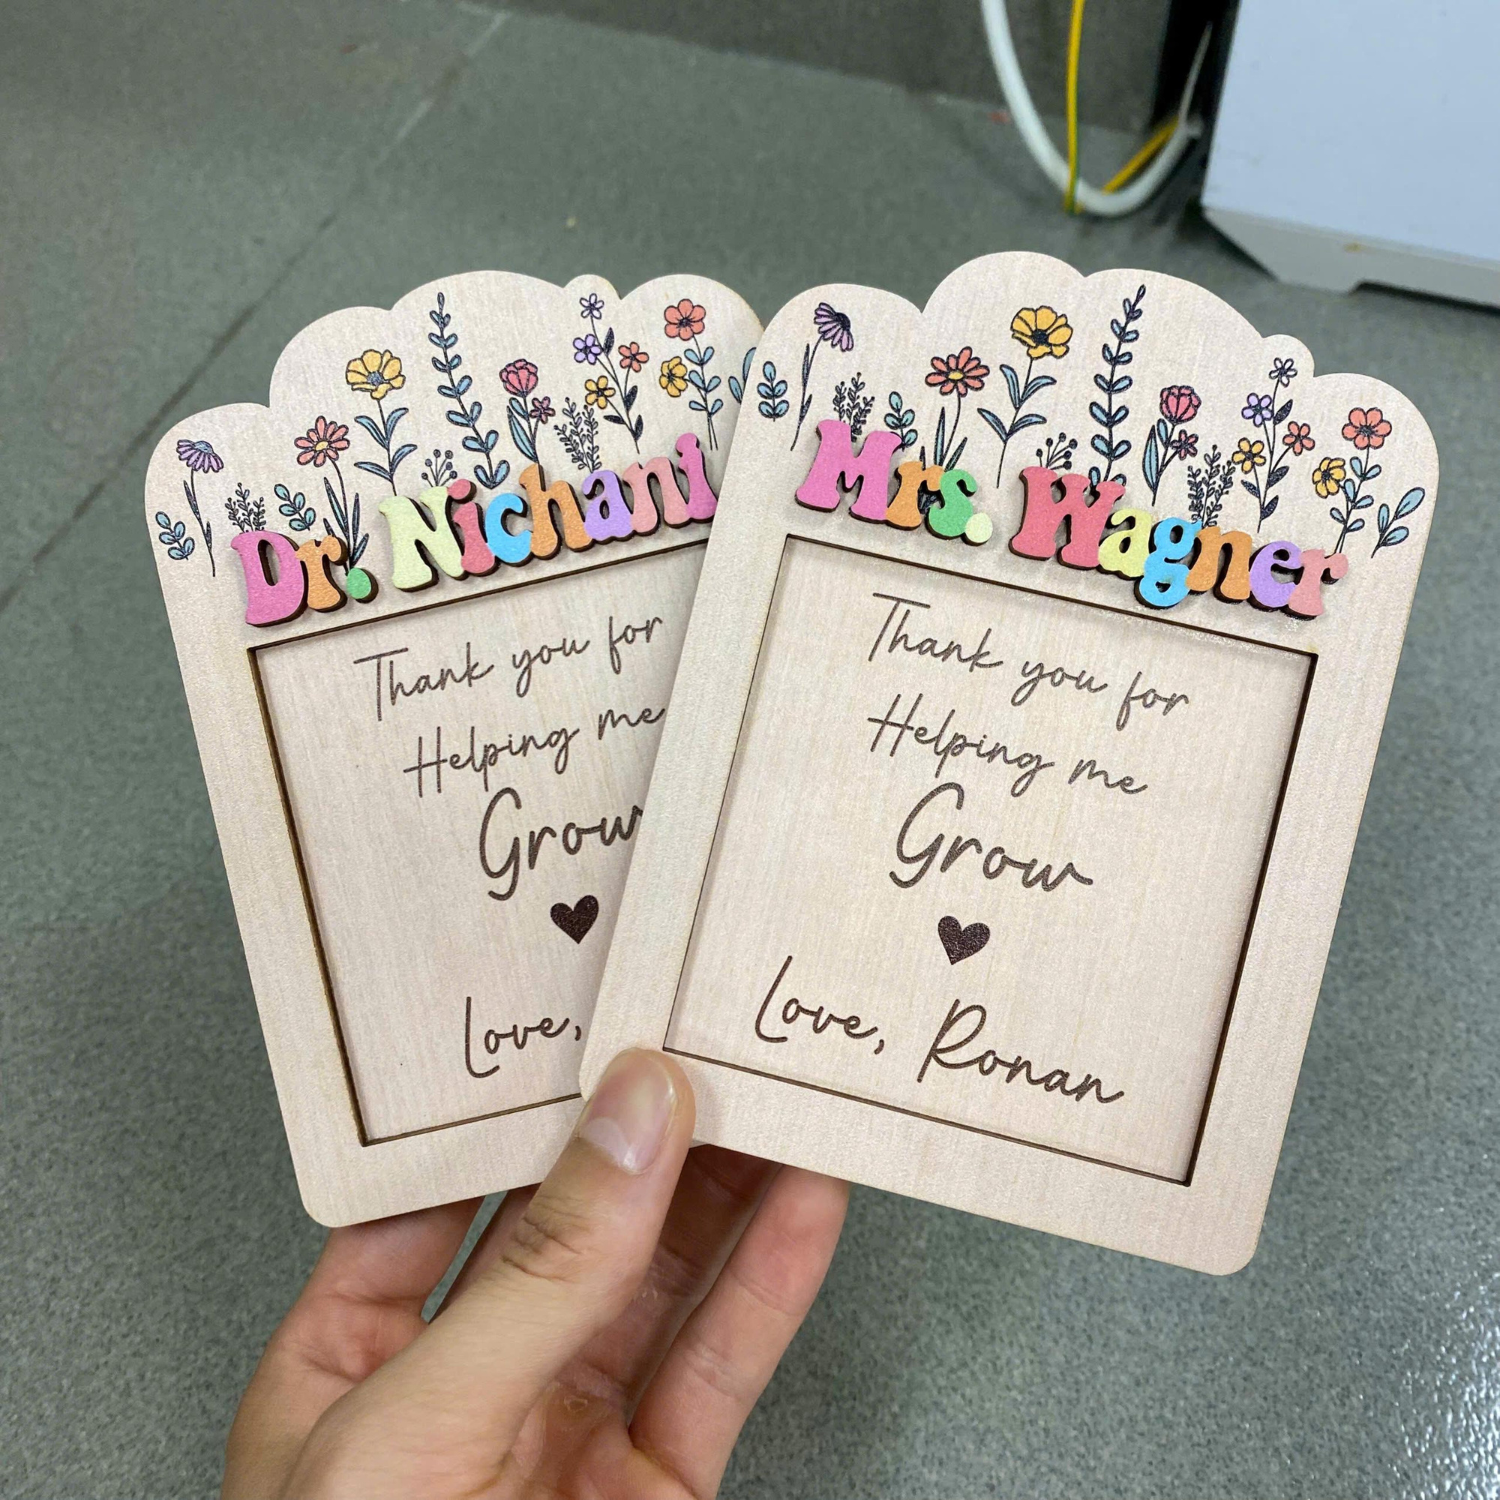 Dr. Nichani
Thank you for
Helping me
Grow
Love,
Mrs. Wagner
Thank you for
Helping me
Grow
Love, Ronan